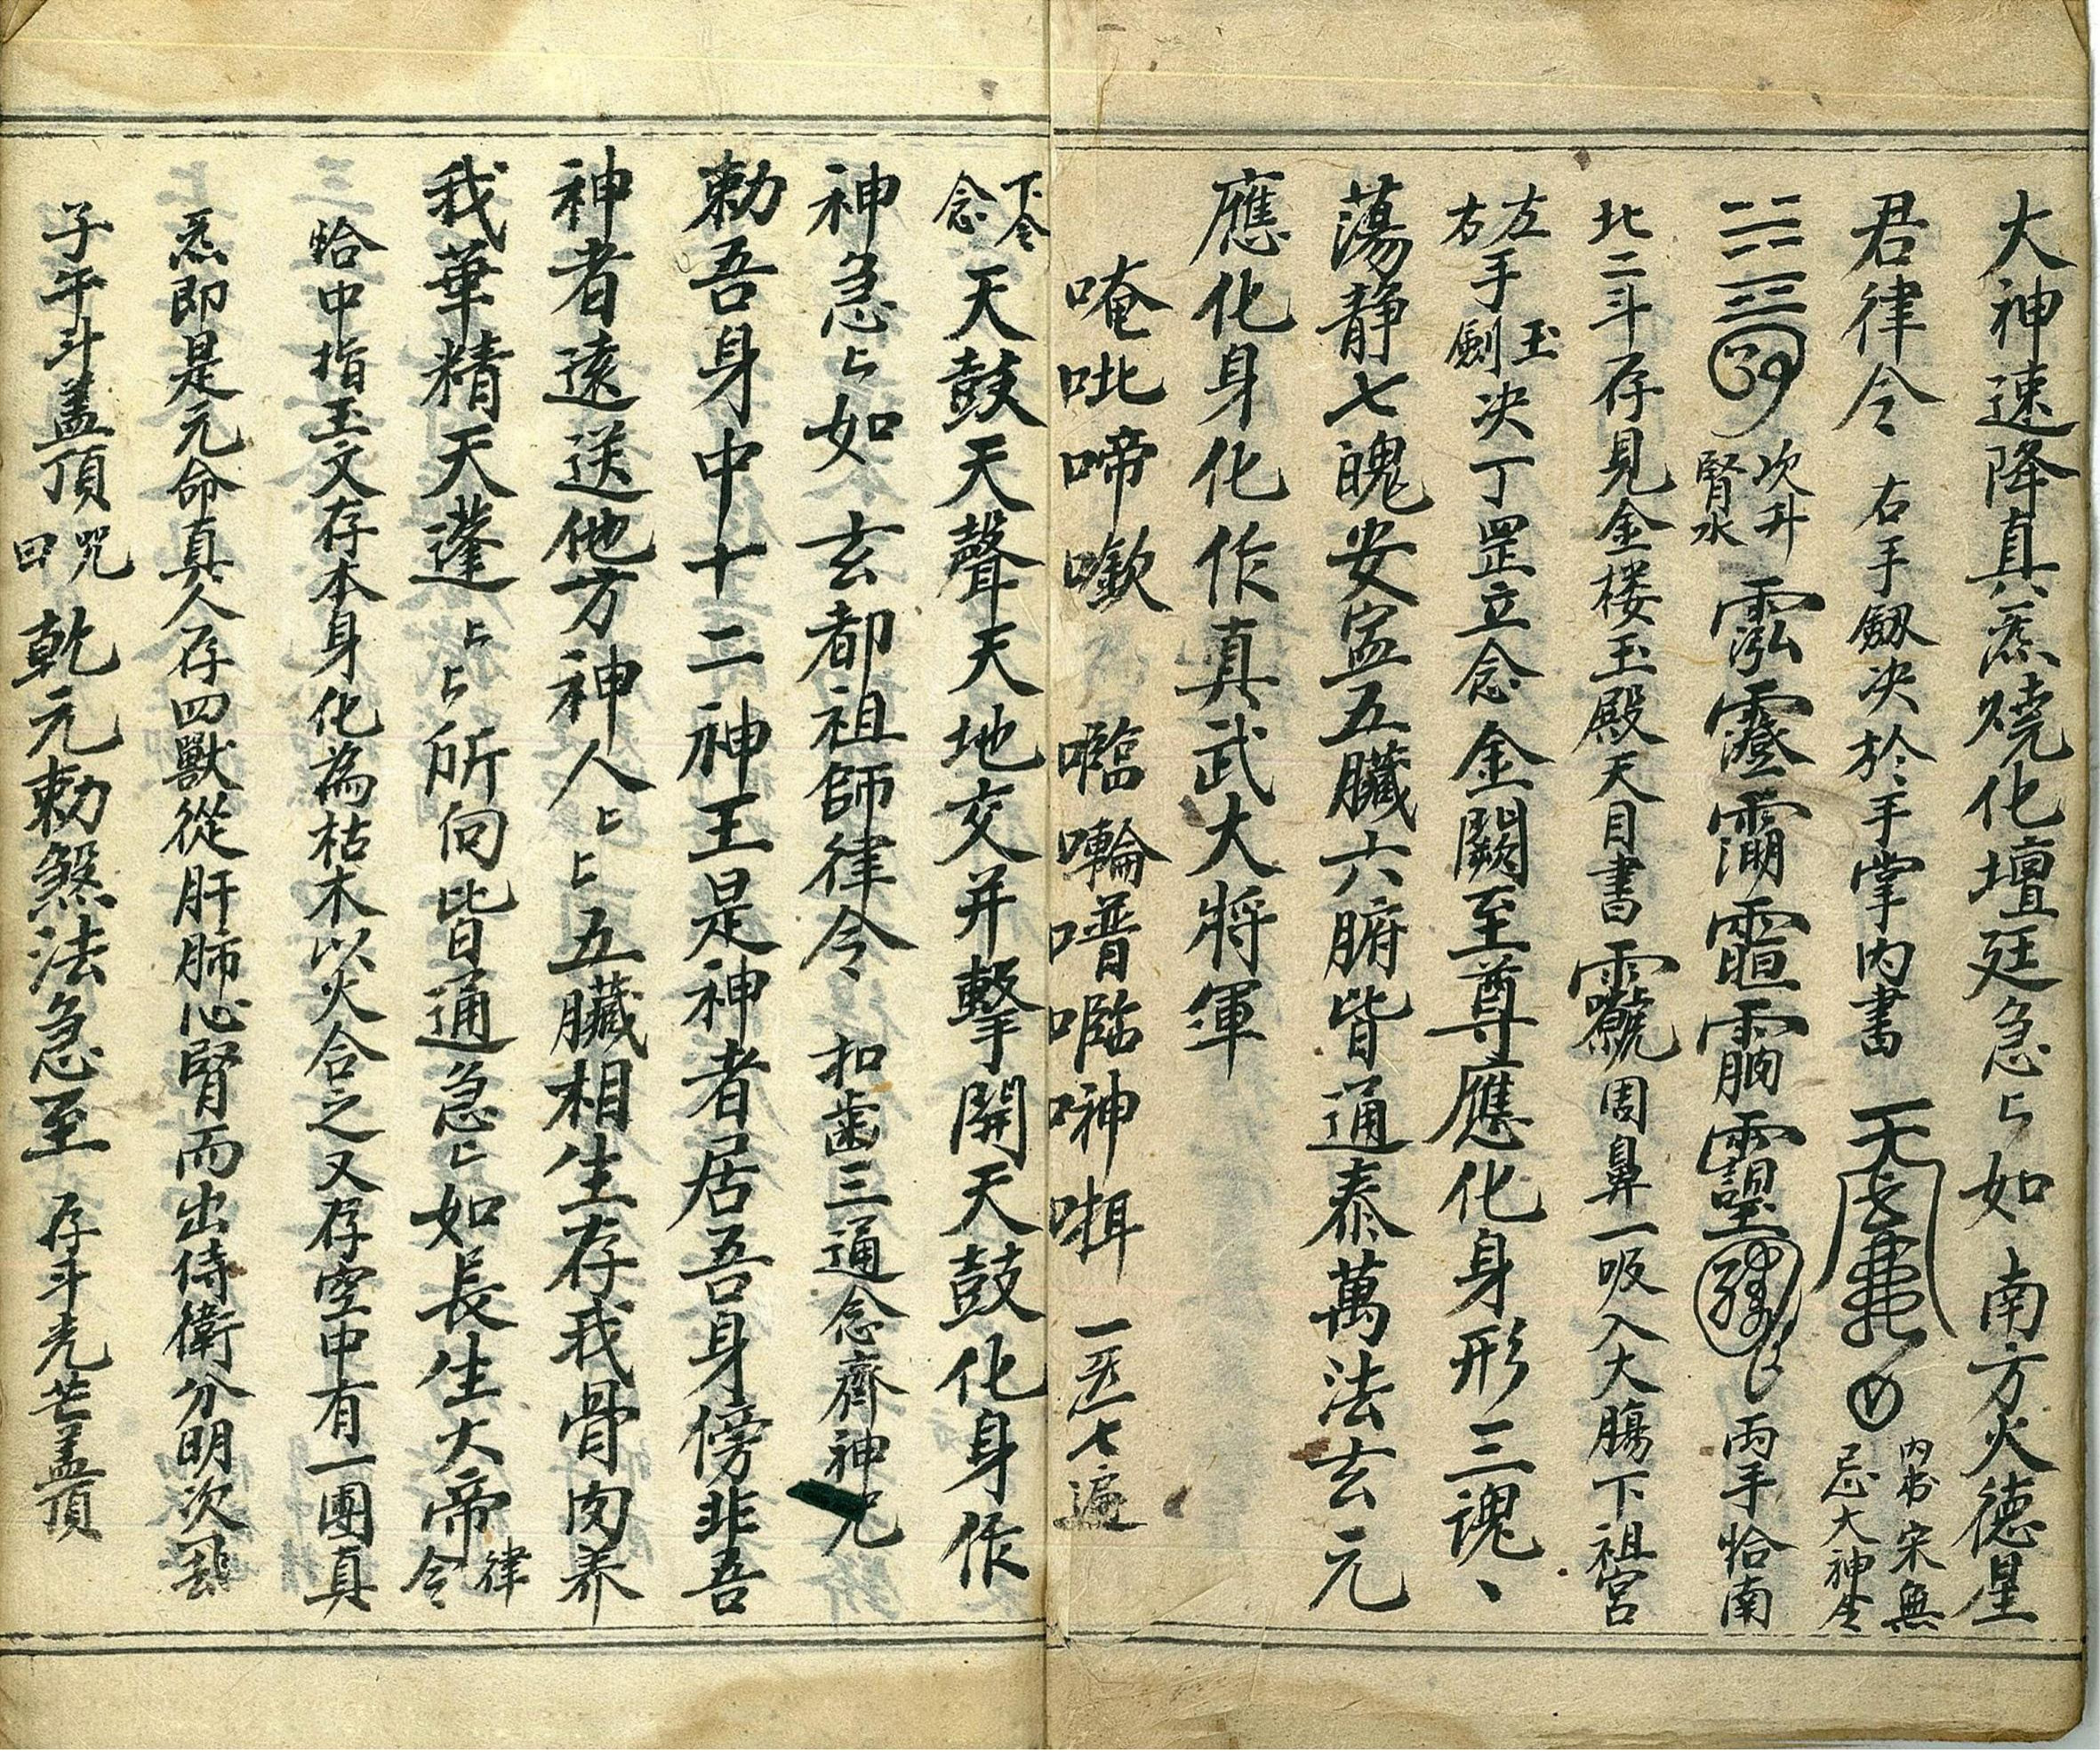 大神速降真炁燒化壇廷急〻如南方火德星
君律令 右手劔决於手掌内書 内書宋無忌大神全
次升腎水 兩手恰南
北二斗存見金楼玉殿天目書 周鼻一吸入大腸下祖宮
左右手玉劍决丁罡立念金闕至尊應化身形三魂、
蕩静七魄安寍五臟六腑皆通泰萬法玄元
應化身化作真武大将軍
唵吡啼㘕 噜普 一炁七遍
下令念 天鼓天聲天地交并擊開天鼓化身作
神急〻如玄都祖師律令 扣歯三通念齊神咒
勅吾身中十二神王是神者居吾身傍非吾
神者遠送他方神人〻〻五臟相生存我骨肉养
我華精天蓬〻〻所向皆通急〻如長生大帝律令
恰中指玉文存本身化為枯木以火合之又存空中有一團真
炁即是元命真人存四獸從肝肺心腎而出侍衛分明次
子午斗盖頂咒曰 乾元勅煞法急至 存斗光芒盖頂